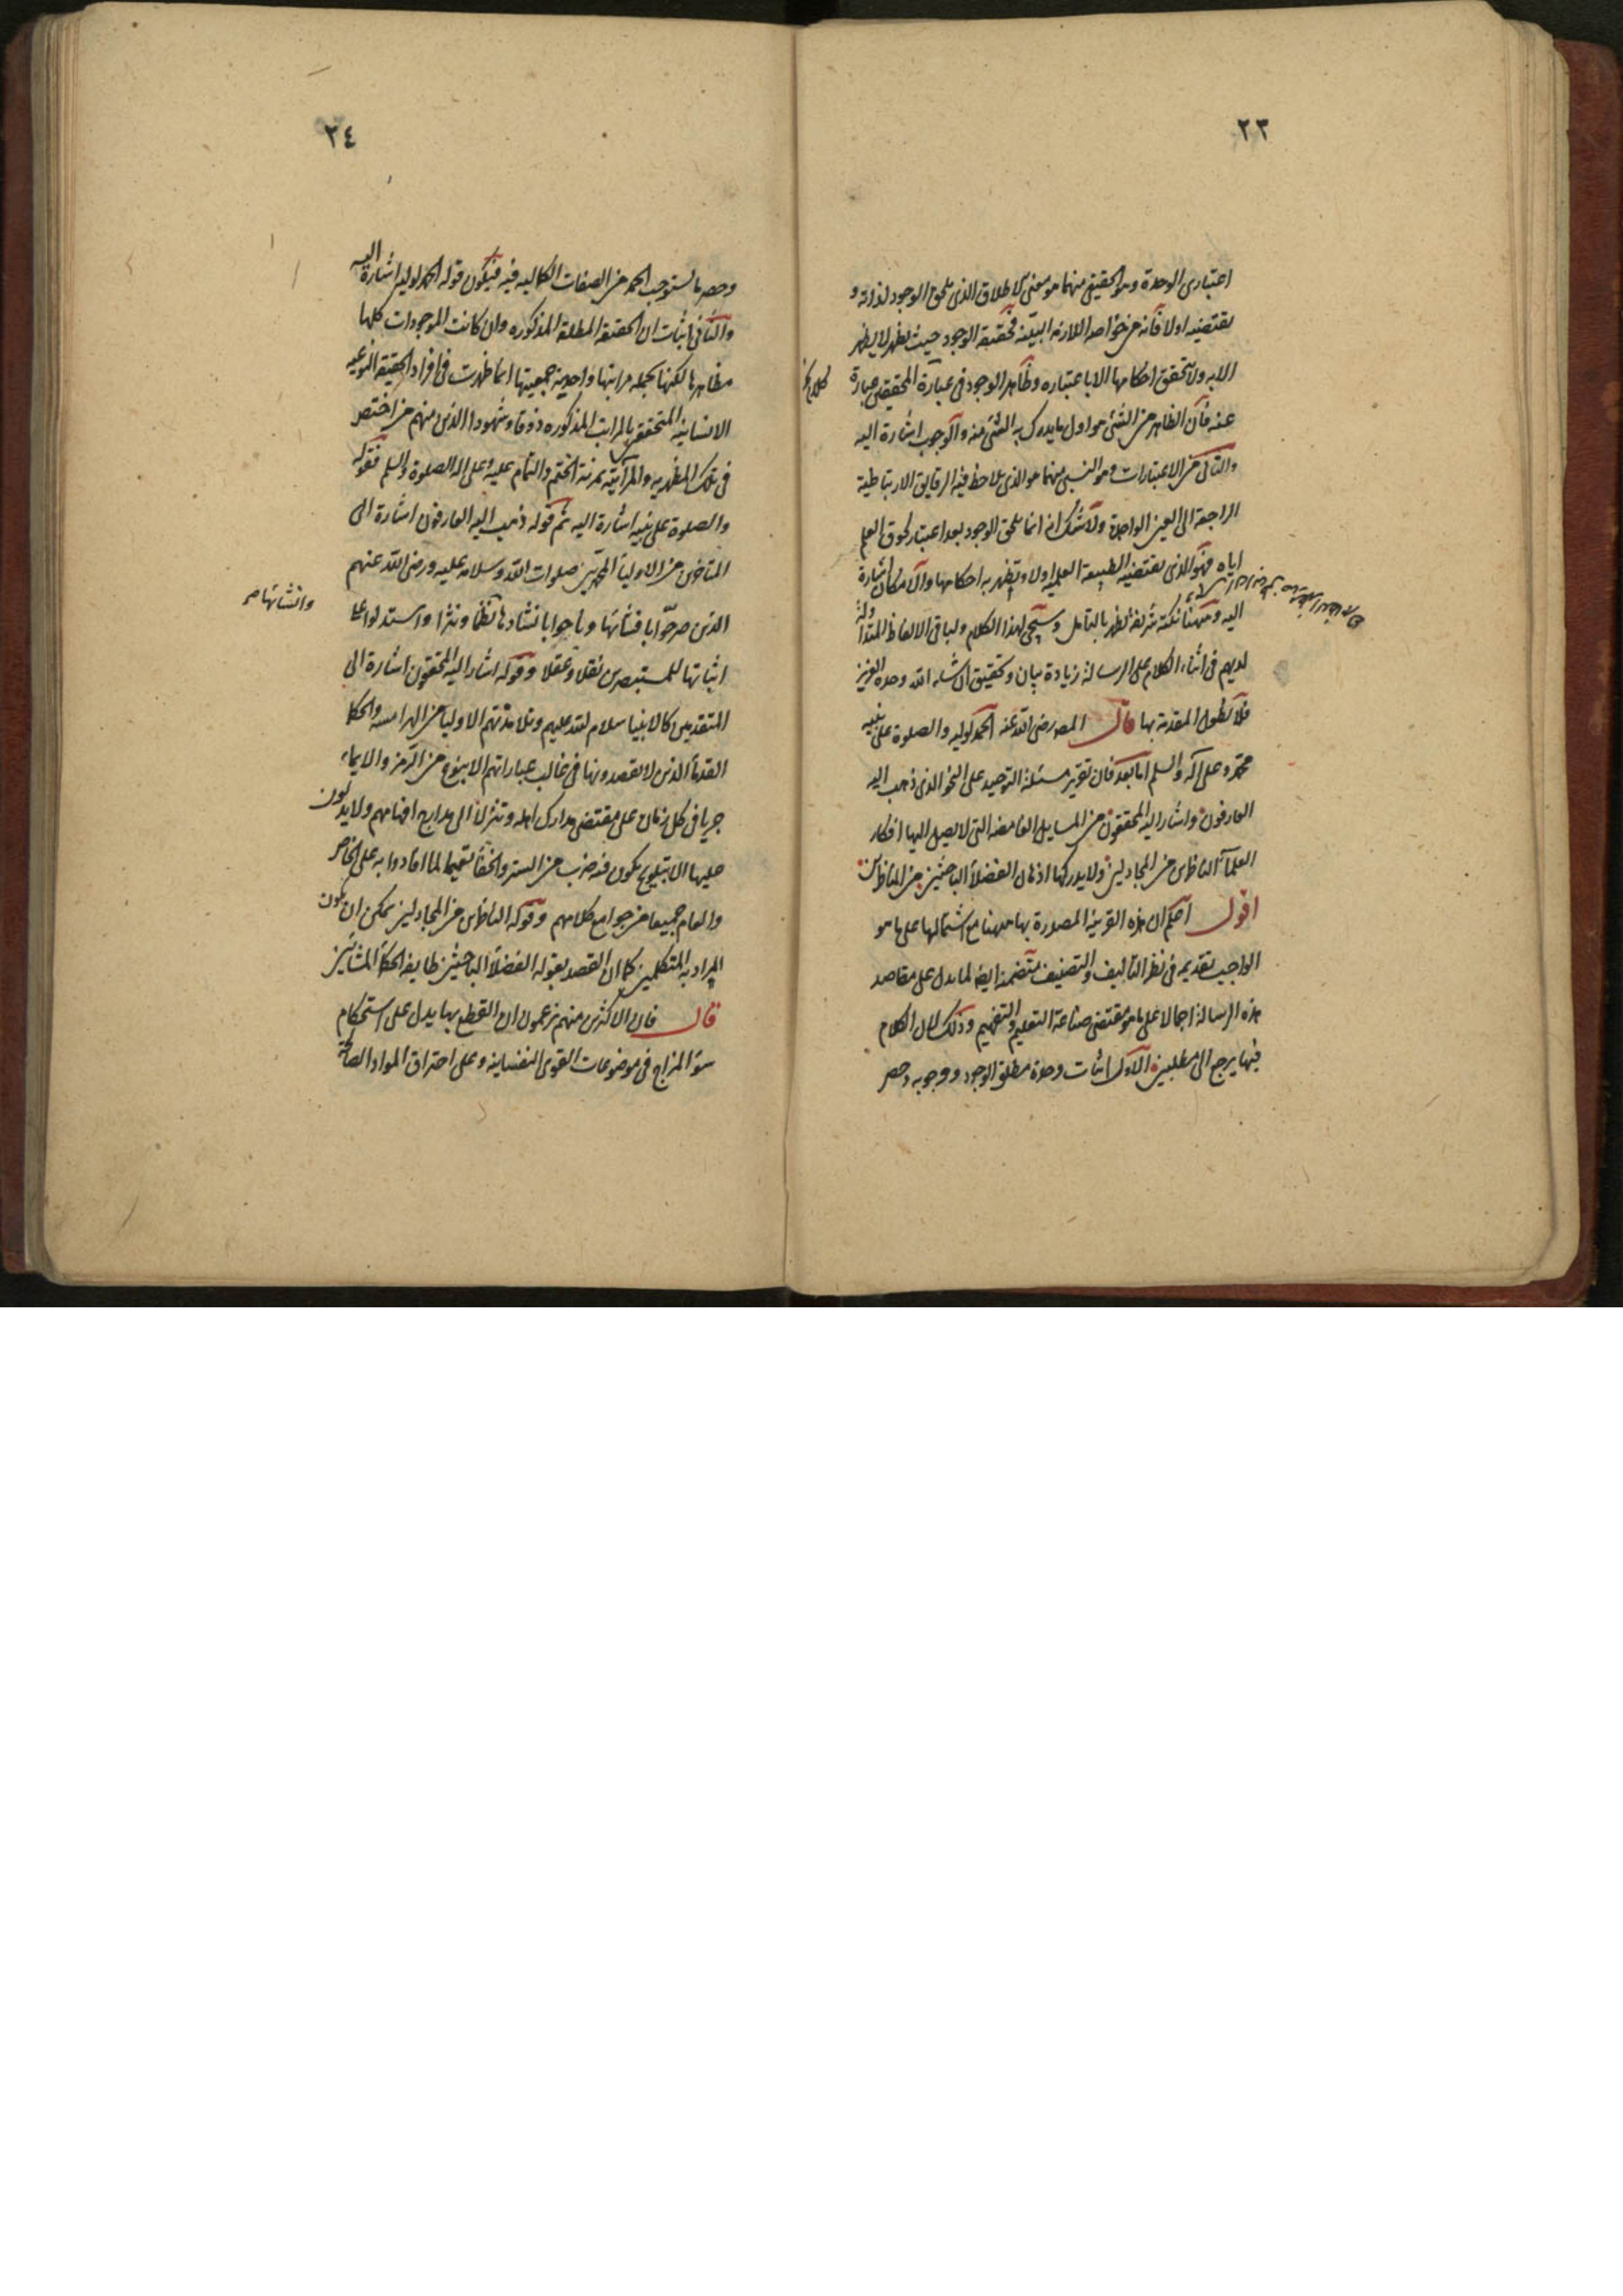 ٢٣
اعتبارى الوحدة وهو الحقيقى منهما هو معنى الاطلاق الذى يلحق الوجود لذاته و
يقتضيه اولا فانه من خواصه اللازمة البينة فحقيقة الوجود حيث تظهر لا يظهر
الا به ولا تتحقق احكامها الا باعتباره وظاهر الوجود فى عبارة المحققين عبارة
عنه فان الظاهر من الشئ هو اول ما يدرك به الشئ منه والوجوب اشارة اليه
والثانى من الاعتبارات وهو النسبى منهما هو الذى يلاحظ فيه الرقايق الارتباطية
الراجعة الى العين الواحدة ولا شك انه انما يلحق الوجود بعد اعتبار لحوق العلم
اياه فهو الذى تقتضيه الطبيعة العلمية اولا ويظهر به احكامها والامكان اشارة
اليه وههنا نكتة شريفة تظهر بالتامل وسيجئ لهذا الكلام ولباقى الالفاظ المتداولة
لديهم فى اثناء الكلام على الرسالة زيادة بيان وتحقيق ان شاء الله وحده العزيز
فلا نطول المقدمة بها قال المصه رضى الله عنه الحمد لوليه والصلوة على نبيه
محمد وعلى آله والسلم اما بعد فان تقرير مسئلة التوحيد على النحو الذى ذهب اليه
العارفون واشار اليه المحققون من المسايل الغامضة التى لا يصل اليها افكار
العلماء الناظرين من المجادلين ولا يدركها اذهان الفضلاء الباحثين من الناظرين
اقول اعلم ان هذه القرينة المصدرة بها ههنا مع اشتمالها على ما هو
الواجب تقديمه فى نظر التاليف والتصنيف متضمنة ايضا لما يدل على مقاصد
هذه الرسالة اجمالا على ما هو مقتضى صناعة التعليم والتفهيم وذلك لان الكلام
فيها يرجع الى مطلبين الاول اثبات وحدة مطلق الوجود ووجوبه وحصر
٢٤
وحصر ما يستوجب الحمد من الصفات الكمالية فيه فيكون قوله الحمد لوليه اشارة اليه
والثانى اثبات ان الحقيقة المطلقة المذكوره وان كانت الموجودات كلها
مظاهرها لكنها بجملة مراتبها واحدية جمعيتها انما ظهرت فى افراد الحقيقة النوعية
الانسانية المتحققين بالمراتب المذكوره ذوقا وشهودا الذين منهم من اختص
فى تلك المظهرية والمرآتية بمرتبة الختم والتمام عليه وعلى اله الصلوة والسلم فقوله
والصلوة على نبيه اشارة اليه ثم قوله ذهب اليه العارفون اشارة الى
المتاخرين من الاولياء المحمديين صلوات الله وسلامه عليه ورضى الله عنهم
الذين صرحوا بافشائها وباحوا بانشادها نظما ونثرا واستدلوا على
وانشائها صح
اثباتها للمستبصرين نقلا وعقلا وقوله اشار اليه المحققون اشارة الى
المتقدمين كالانبيا سلام الله عليهم وتلامذتهم الاوليا من الهرامسة والحكما
القدماء الذين لا يقصدونها فى غالب عباراتهم الا بنوع من الرمز والايماء
جريا فى كل زمان على مقتضى مدارك اهله وتنزلا الى مدارج افهامهم ولا يدلون
عليها الا بتلويح يكون فيه ضرب من الستر والخفاء تعميما لما افادوا به على الخاص
والعام جميعا من جوامع كلامهم وقوله الناظرين من المجادلين يمكن ان يكون
المراد به المتكلمين كما ان القصد بقوله الفضلاء الباحثين طايفة الحكماء المشائين
قال فان الاكثرين منهم يزعمون ان القطع بها يدل على استحكام
سوء المزاج فى موضوعات القوى النفسانية وعلى احتراق المواد الصالحة